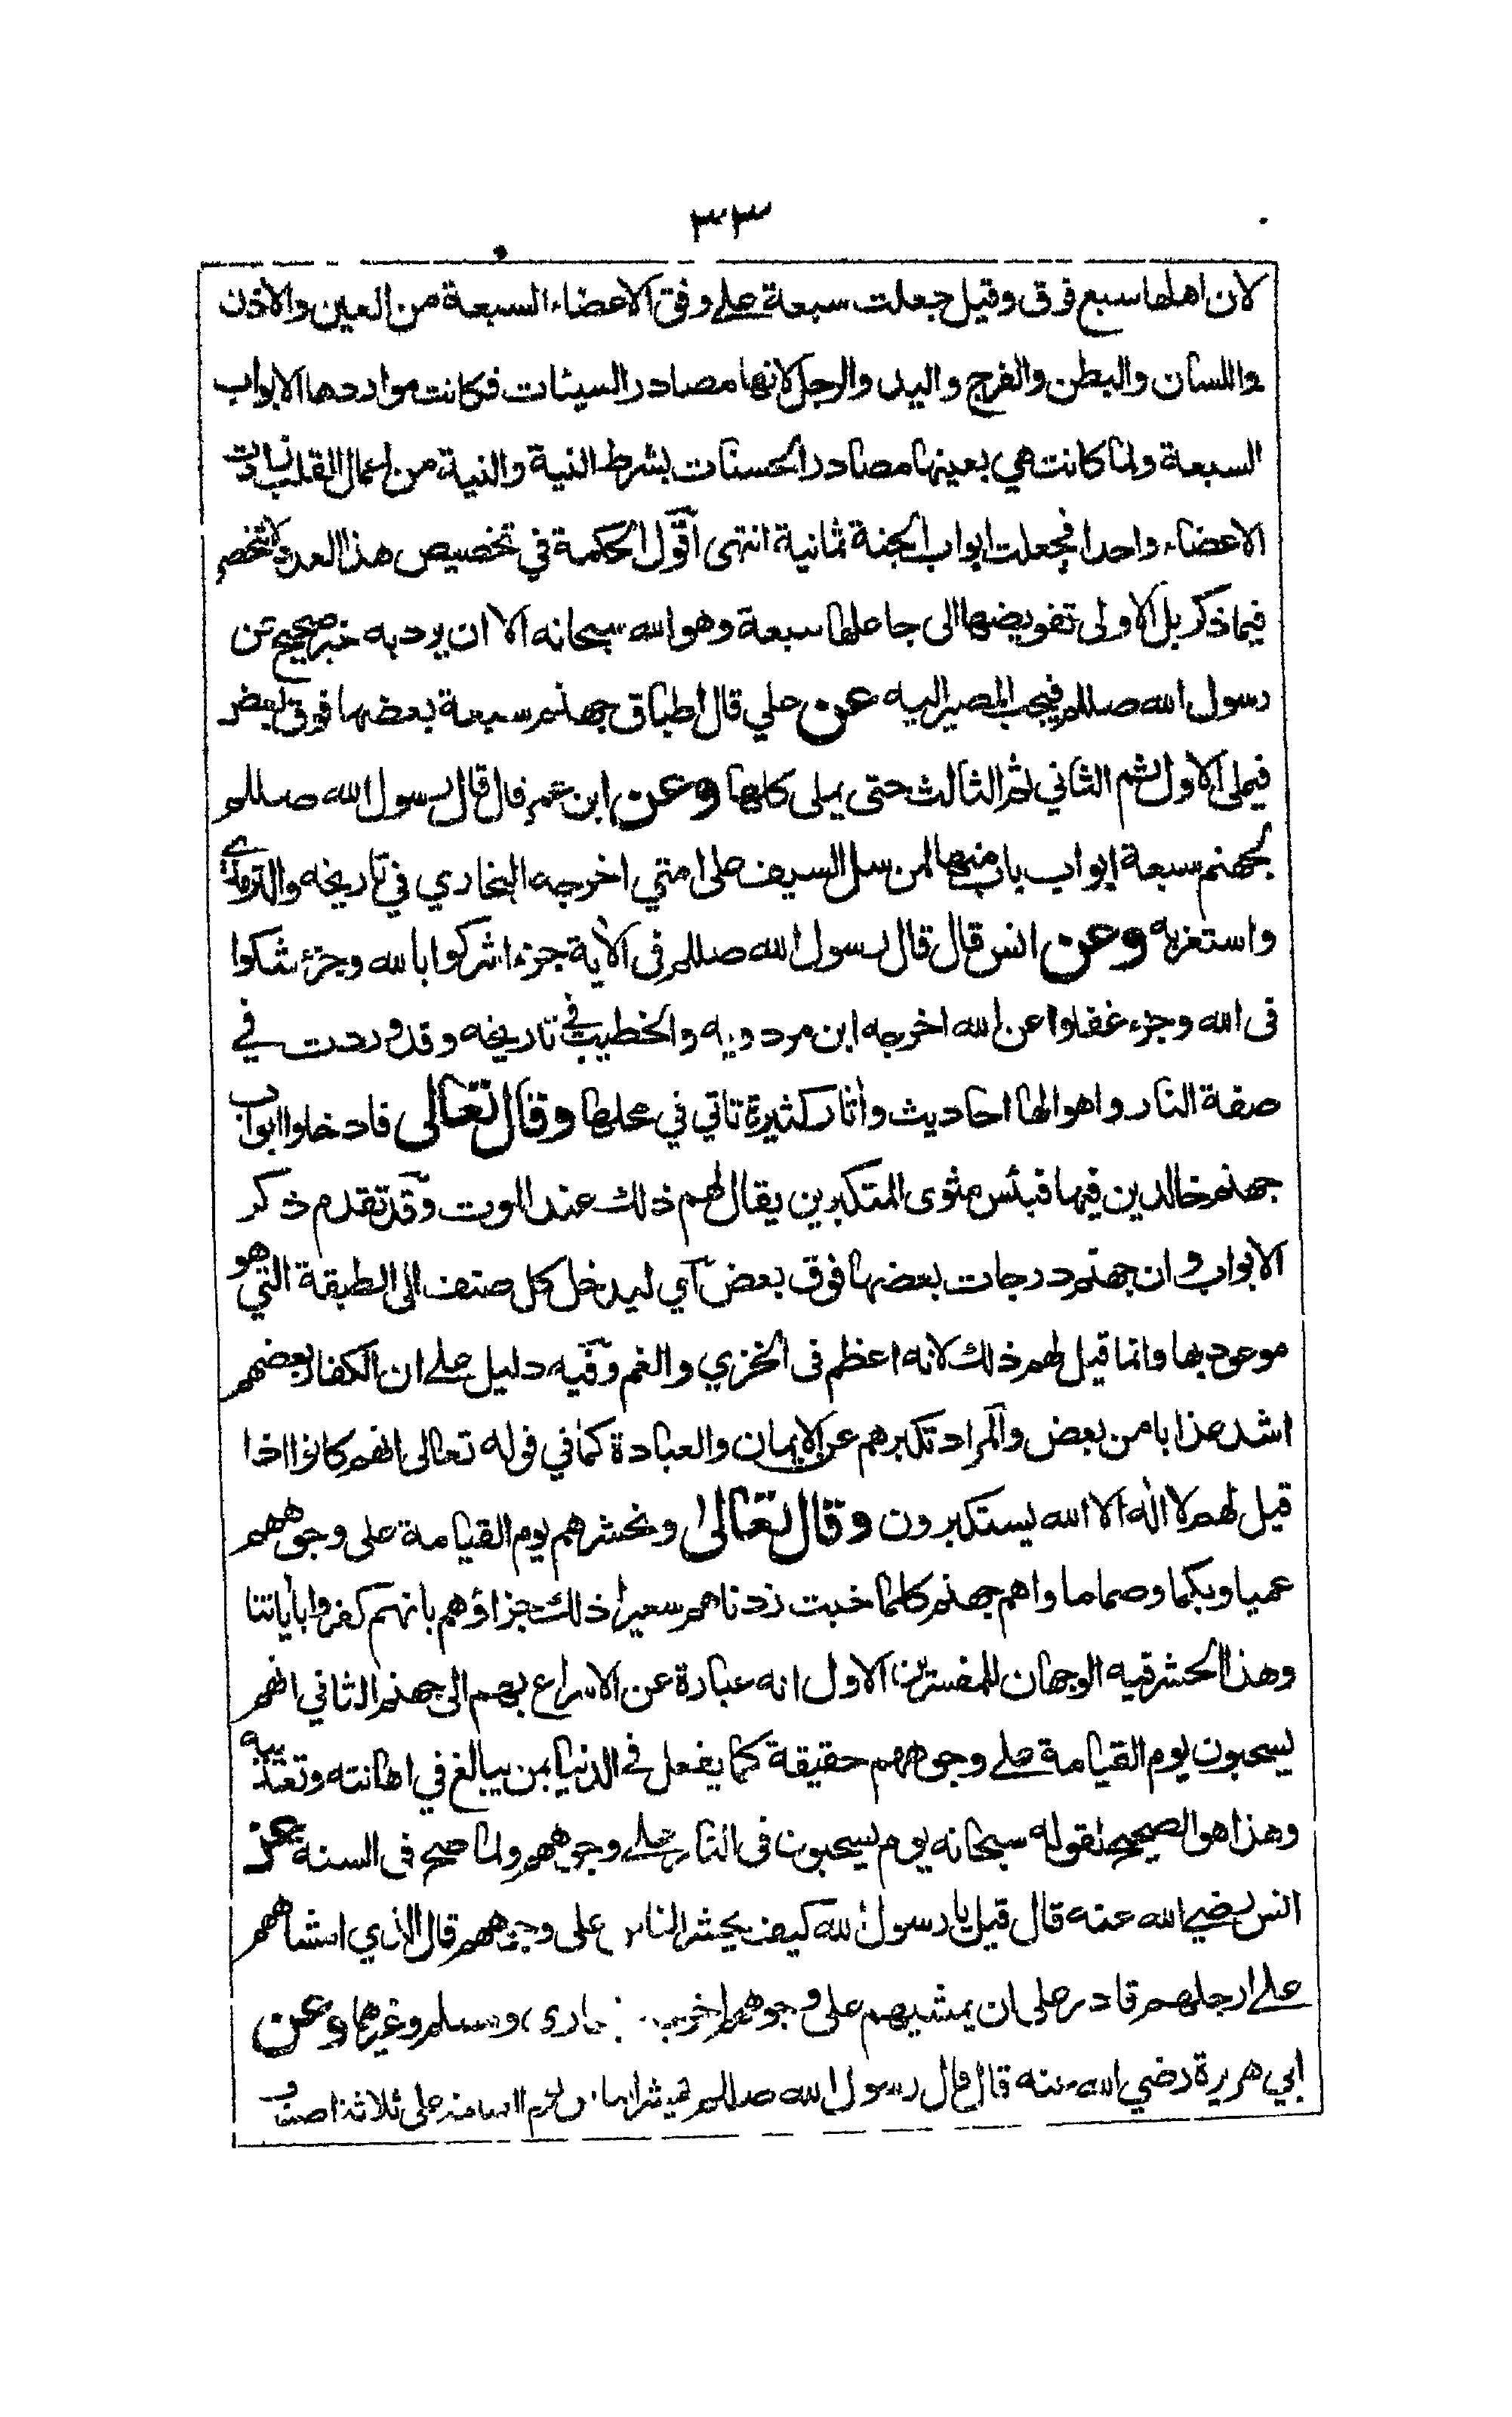 ٣٣
لان اهلها سبع فرق وقيل جعلت سبعة على وفق الاعضاء السبعة من العين والاذن
واللسان والبطن والفرج واليد والرجل لانها مصادر السيئات فكانت مواردها الابواب
السبعة ولما كانت هي بعينها مصادر الحسنات بشرط النية والنية من اعمال القلب زادت
الاعضاء واحدا فجعلت ابواب الجنة ثمانية انتهى اقول الحكمة في تخصيص هذا العدد لا تنحصر
فيما ذكر بل الاولى تفويضها الى جاعلها سبعة وهو الله سبحانه الا ان يرد به خبر صحيح عن
رسول الله صللم فيجب المصير اليه عن علي قال اطباق جهنم سبعة بعضها فوق بعض
فيملى الاول ثم الثاني ثم الثالث حتى يملى كلها وعن ابن عمر قال قال رسول الله صللم
لجهنم سبعة ابواب باب منها لمن سل السيف على امتي اخرجه البخاري في تاريخه والترمذي
واستغربه وعن انس قال قال رسول الله صللم في الآية جزء اشركوا بالله وجزء شكوا
فى الله وجزء غفلوا عن الله اخرجه ابن مردويه والخطيب في تاريخه وقد وردت في
صفة النار واهوالها احاديث وآثار كثيرة تاتي في محلها وقال تعالى فادخلوا ابواب
جهنم خالدين فيها فبئس مثوى المتكبرين يقال لهم ذلك عند الموت وقد تقدم ذكر
الابواب وان جهنم درجات بعضها فوق بعض اي ليدخل كل صنف الى الطبقة التي هو
موعود بها وانما قيل لهم ذلك لانه اعظم فى الخزي والغم وفيه دليل على ان الكفار بعضهم
اشد عذابا من بعض والمراد تكبرهم عن الايمان والعبادة كما في قوله تعالى انهم كانوا اذا
قيل لهم لا اله الا الله يستكبرون وقال تعالى ونحشرهم يوم القيامة على وجوههم
عميا وبكما وصما ماواهم جهنم كلما خبت زدناهم سعيرا ذلك جزاؤهم بانهم كفروا بآياتنا
وهذا الحشر فيه الوجهان للمفسرين الاول انه عبارة عن الاسراع بهم الى جهنم الثاني انهم
يسحبون يوم القيامة على وجوههم حقيقة كما يفعل في الدنيا بمن يبالغ في اهانته وتعذيبه
وهذا هو الصحيح لقوله سبحانه يوم يسحبون فى النار على وجوههم ولما صح فى السنه عن
انس رضي الله عنه قال قيل يا رسول الله كيف يحشر الناس على وجوههم قال الذي امشاهم
على ارجلهم قادر على ان يمشيهم على وجوههم اخرجه وسلم وغيرهما وعن
ابي هريرة رضي الله عنه قال قال رسول الله صللم يحشر الناس يوم القيامة على ثلاثة اصناف